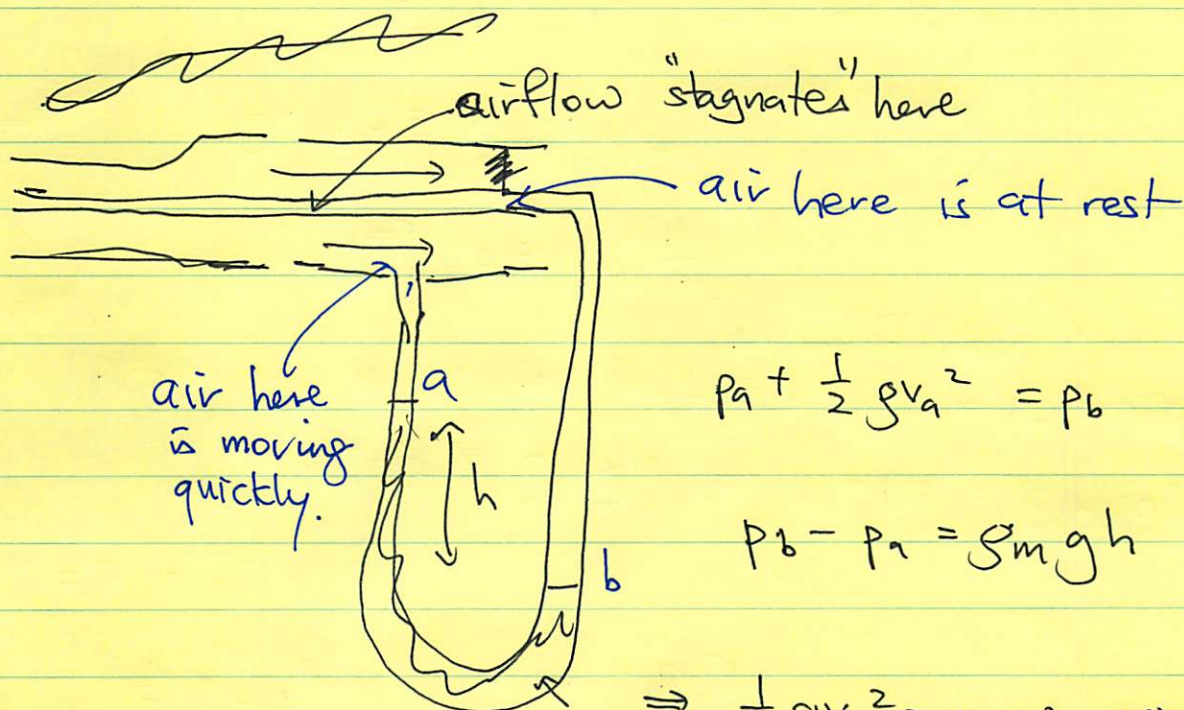 airflow "stagnates" here
air here is at rest
air here
is moving
quickly.
a
h
b
pa + 1/2 ρva² = pb
pb - pa = ρm g h
⇒ 1/2 ρv²